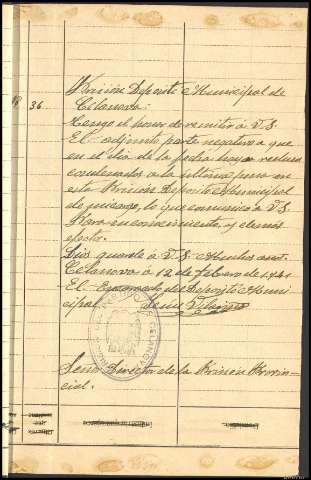 36
Prisión Deposito Municipal de
Celanova.
Tengo el honor de remitir á V.S.
El adjunto parte negativo a que
en el dia de la fecha haya reclusos
condenados a la ultima pena en
esta Prision Deposito Municipal
de mi cargo, lo que comunico á V.S.
Para su conocimiento, y demas
efectos.
Dios guarde á V.S. Muchos años.
Celanova á 12 de febrero de
El Encargado del Deposito Muni
cipal.
Señor Director de la Prision Provin-
cial.